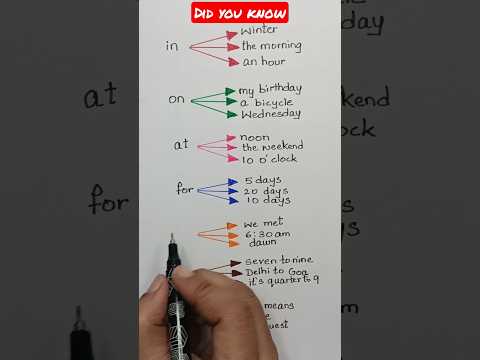 DID YOU KNOW
in
Winter
the morning
an hour
on
my birthday
a bicycle
Wednesday
at
noon
the weekend
10 o'clock
for
5 days
20 days
10 days
we met
6:30 am
dawn
seven to nine
Delhi to Goa
it's quarter to 9
means